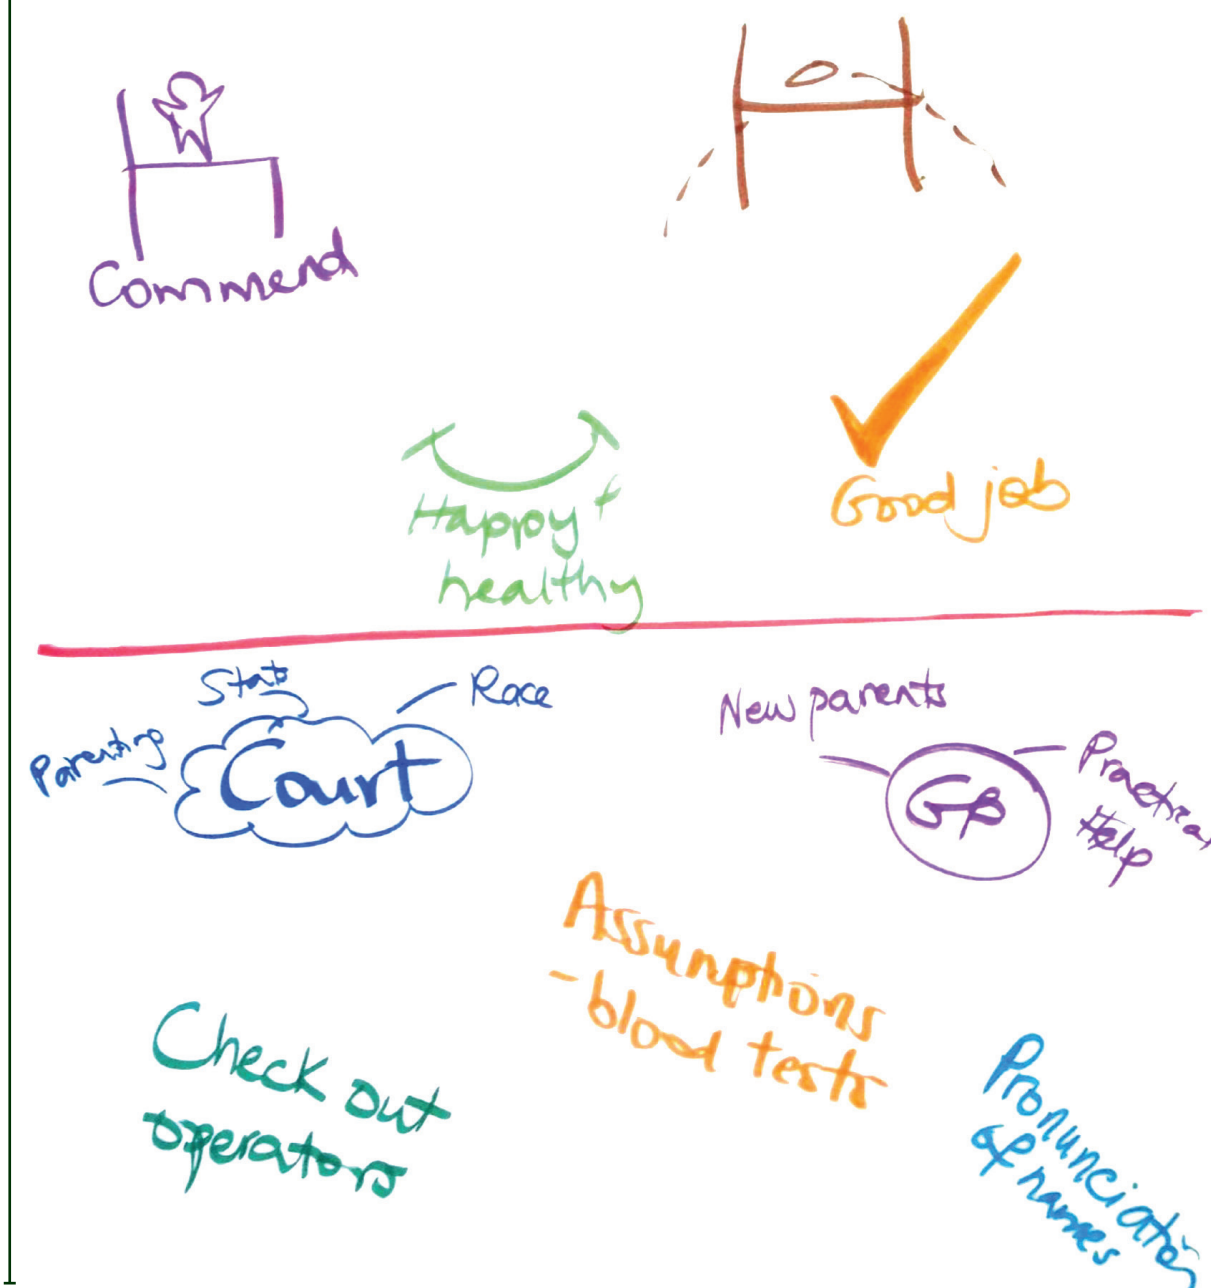 Commend
Good job
Happy +
healthy
Stats
Race
Parenting
Court
New parents
GP
Practical
Help
Assumptions
- blood tests
Check out
operators
Pronunciation
of names